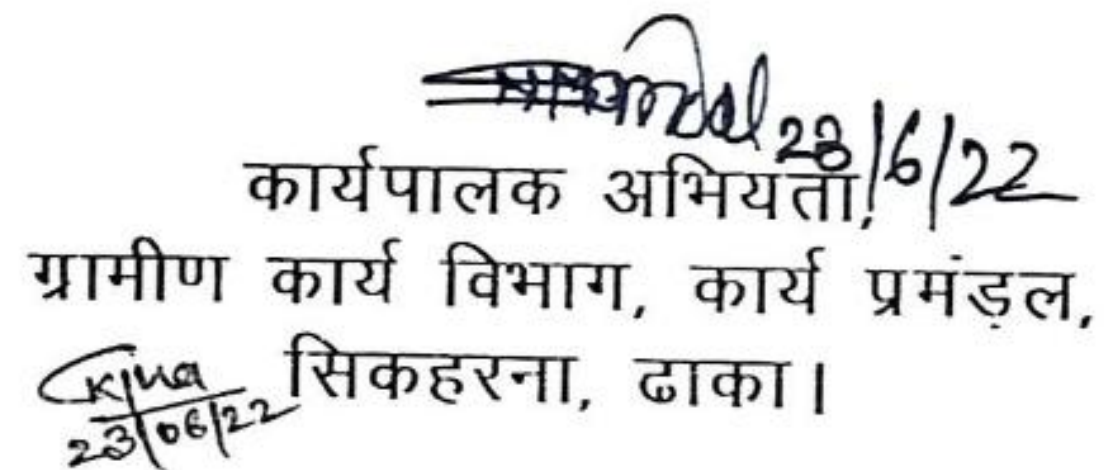 23/6/22
कार्यपालक अभियता,
ग्रामीण कार्य विभाग, कार्य प्रमंड़ल,
सिकहरना, ढाका।
23/06/22